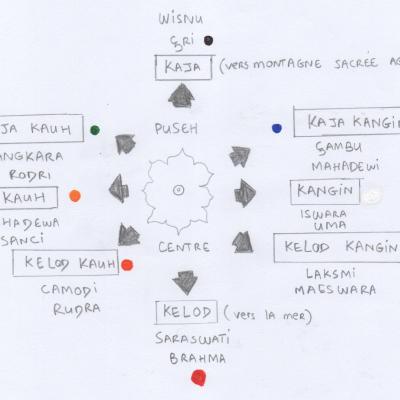 WISNU
ÇRI
KAJA (VERS MONTAGNE SACRÉE AG
JA KAUH
NGKARA
RODRI
KAUH
HADEWA
SANCI
KELOD KAUH
CAMODI
RUDRA
PUSEH
CENTRE
KAJA KANGIN
ÇAMBU
MAHADEWI
KANGIN
ISWARA
UMA
KELOD KANGIN
LAKSMI
MAESWARA
KELOD (vers la mer)
SARASWATI
BRAHMA